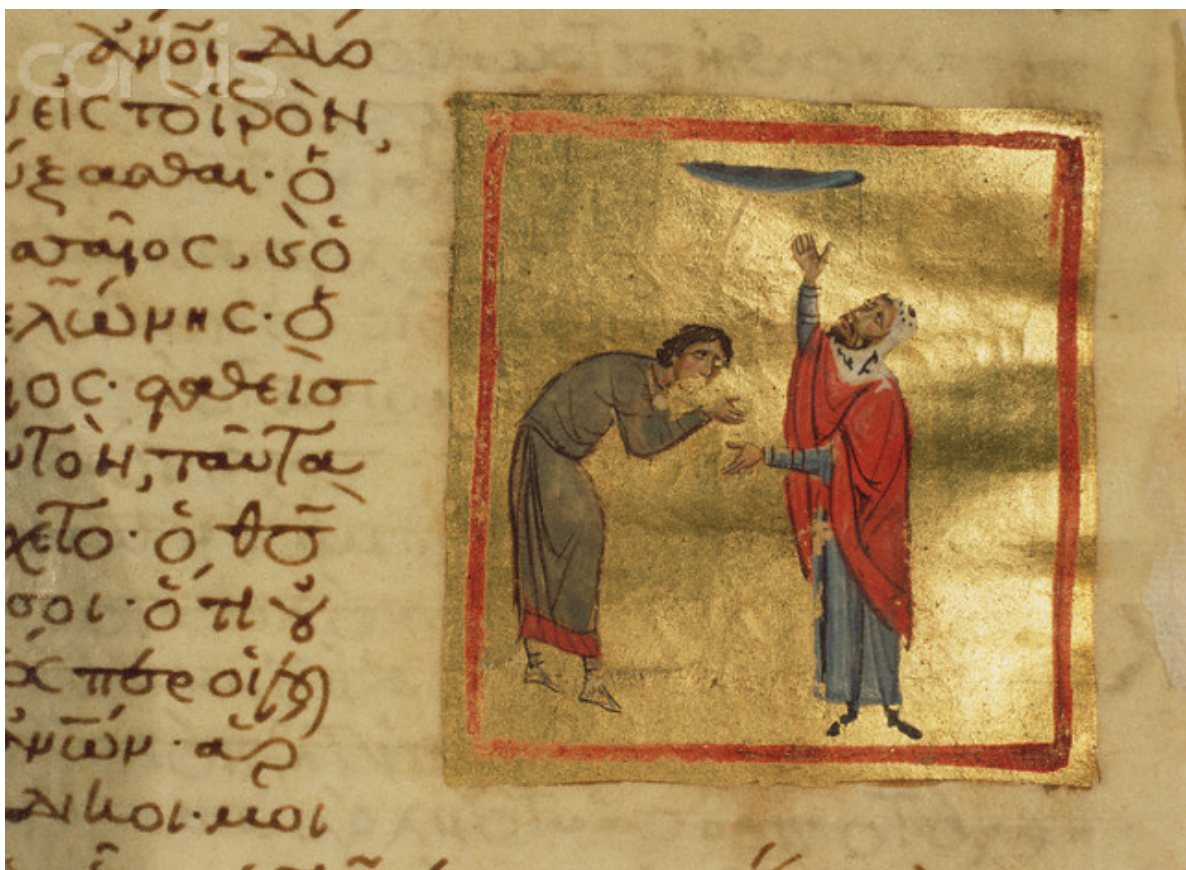 corbis.
ἄνοι δύο
ν εἰς τὸ ἱρὸν,
ύξασθαι· ὁ
σαῖος, καὶ ὁ
ελώνης· ὁ
ιος· σταθεὶσ
υτὸν, ταῦτα
χετο· ὁ θσ
σοι· ὅτι οὐ
περ οἱ
ἀνων· ἅρ
δικοι· μοι